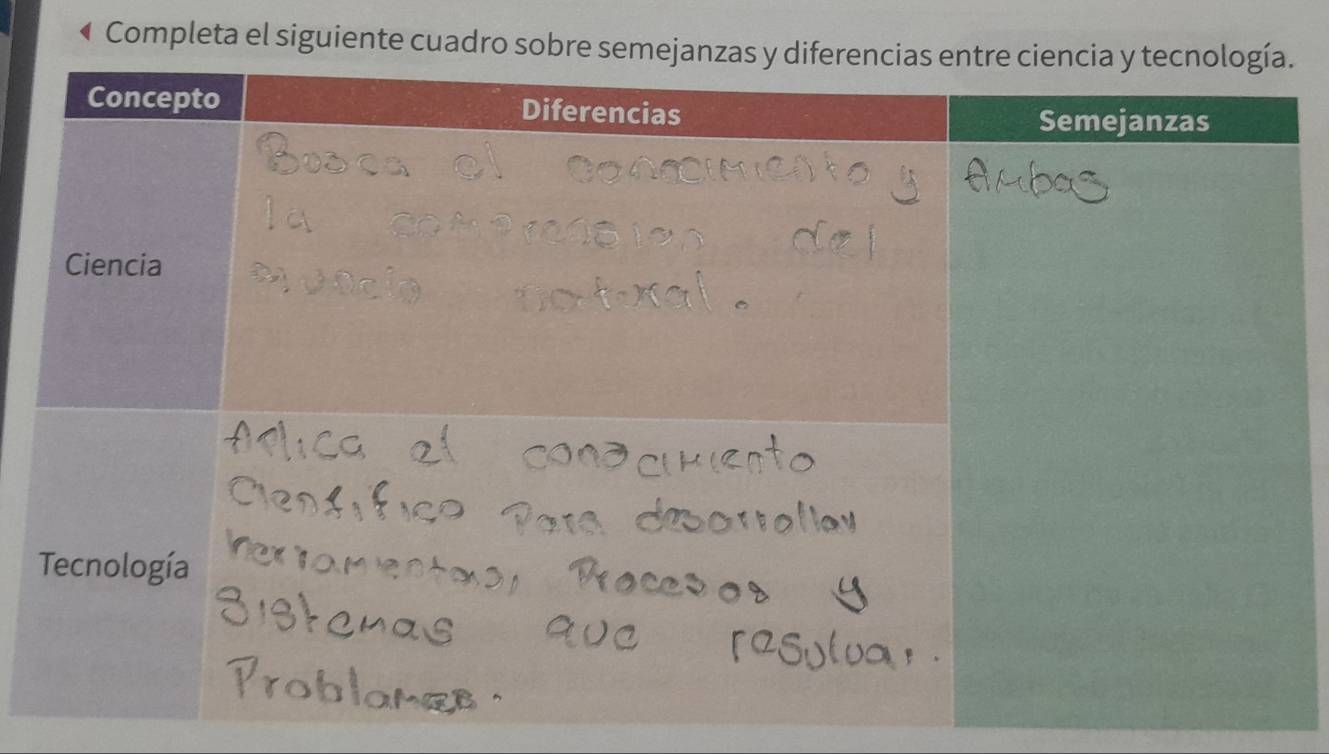 Completa el siguiente cuadro sobre semejanzas y diferencias entre ciencia y tecnología.
Concepto Diferencias Semejanzas
Ciencia
Busca el conocimiento y
la comprension del
mundo natural.
Ambas
Tecnología
Aplica el conocimiento
Cientifico Para desarrollar
herramientas, Procesos y
Sistemas que resolvar.
Problamas.